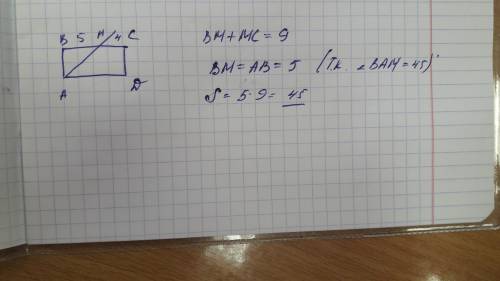 B 5 M 4 C
A D
BM + MC = 9
BM = AB = 5 (т.к. ∠BAM = 45)
S = 5·9 = 45